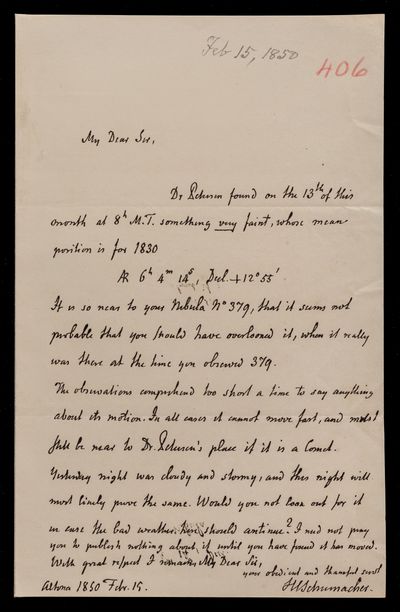 Feb 15, 1850
406
My Dear Sir,
Dr Petersen found on the 13th of this
month at 8h M.T. something very faint, whose mean
position is for 1830
AR 6h 4m 14s, Decl. +12°55'
It is so near to your Nebula No 379, that it seems not
probable that you should have overlooked it, when it really
was there at the time you observed 379.
The observations comprehend too short a time to say anything
about its motion. In all cases it cannot move fast, and must
still be near to Dr. Petersen's place if it is a Comet.
Yesterday night was cloudy and stormy, and this night will
most likely prove the same. Would you not look out for it
in case the bad weather here should continue? I need not pray
you to publish nothing about it until you have found it has moved.
With great respect I remain, My Dear Sir,
your obedient and thankful servt
Altona 1850 Febr. 15.
HCSchumacher.